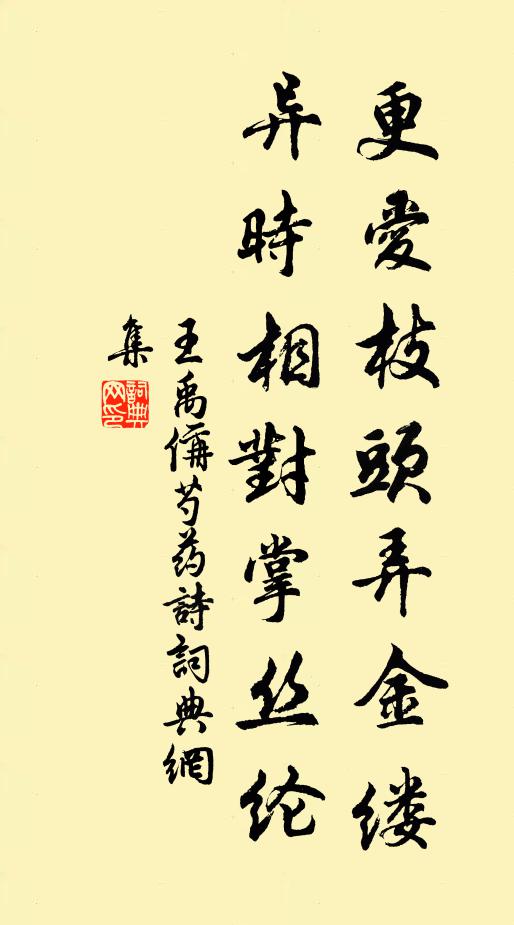 更爱枝頭弄金缕
异時相對掌丝纶
王禹偁芍药詩詞典網
集
詞典網印